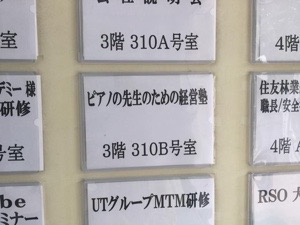 会社説明会
3階 310A号室
4階
デミー 様
研修
号室
ピアノの先生のための経営塾
3階 310B号室
住友林業
職長/安全
4階 A
be
ミナー
UTグループMTM研修
RSO 大